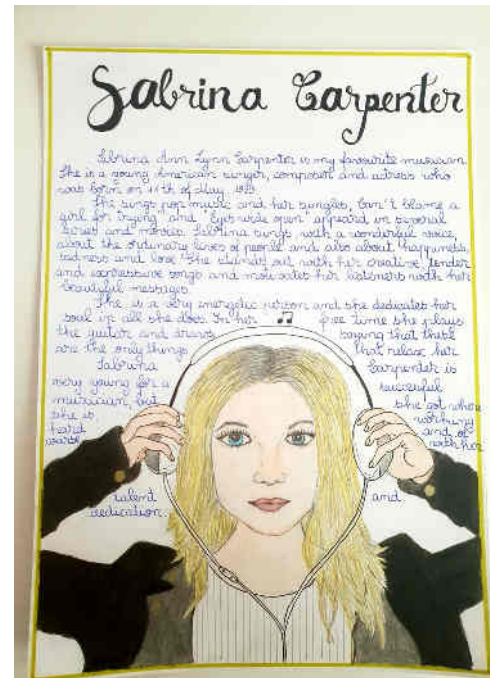 Sabrina Carpenter
Sabrina Ann Lynn Carpenter is my favourite musician.
She is a young American singer, composer and actress who
was born on 11th of May,
She sings pop music and her singles, Can't blame a
girl for trying and "Eyes wide open" appeared in several
series and movies. Sabrina sings with a wonderful voice,
about the ordinary lives of people and also about happiness,
sadness and love. She stands out with her creative, tender
and expressive songs and motivates her listeners with her
beautiful messages.
She is a very energetic person and she dedicates her
soul in all she does. In her free time she plays
the guitar and draws saying that these
are the only things that relax her
Sabrina Carpenter is
very young for a successful
musician, but she got where
she is working
hard and of
work with her
talent and
dedication.